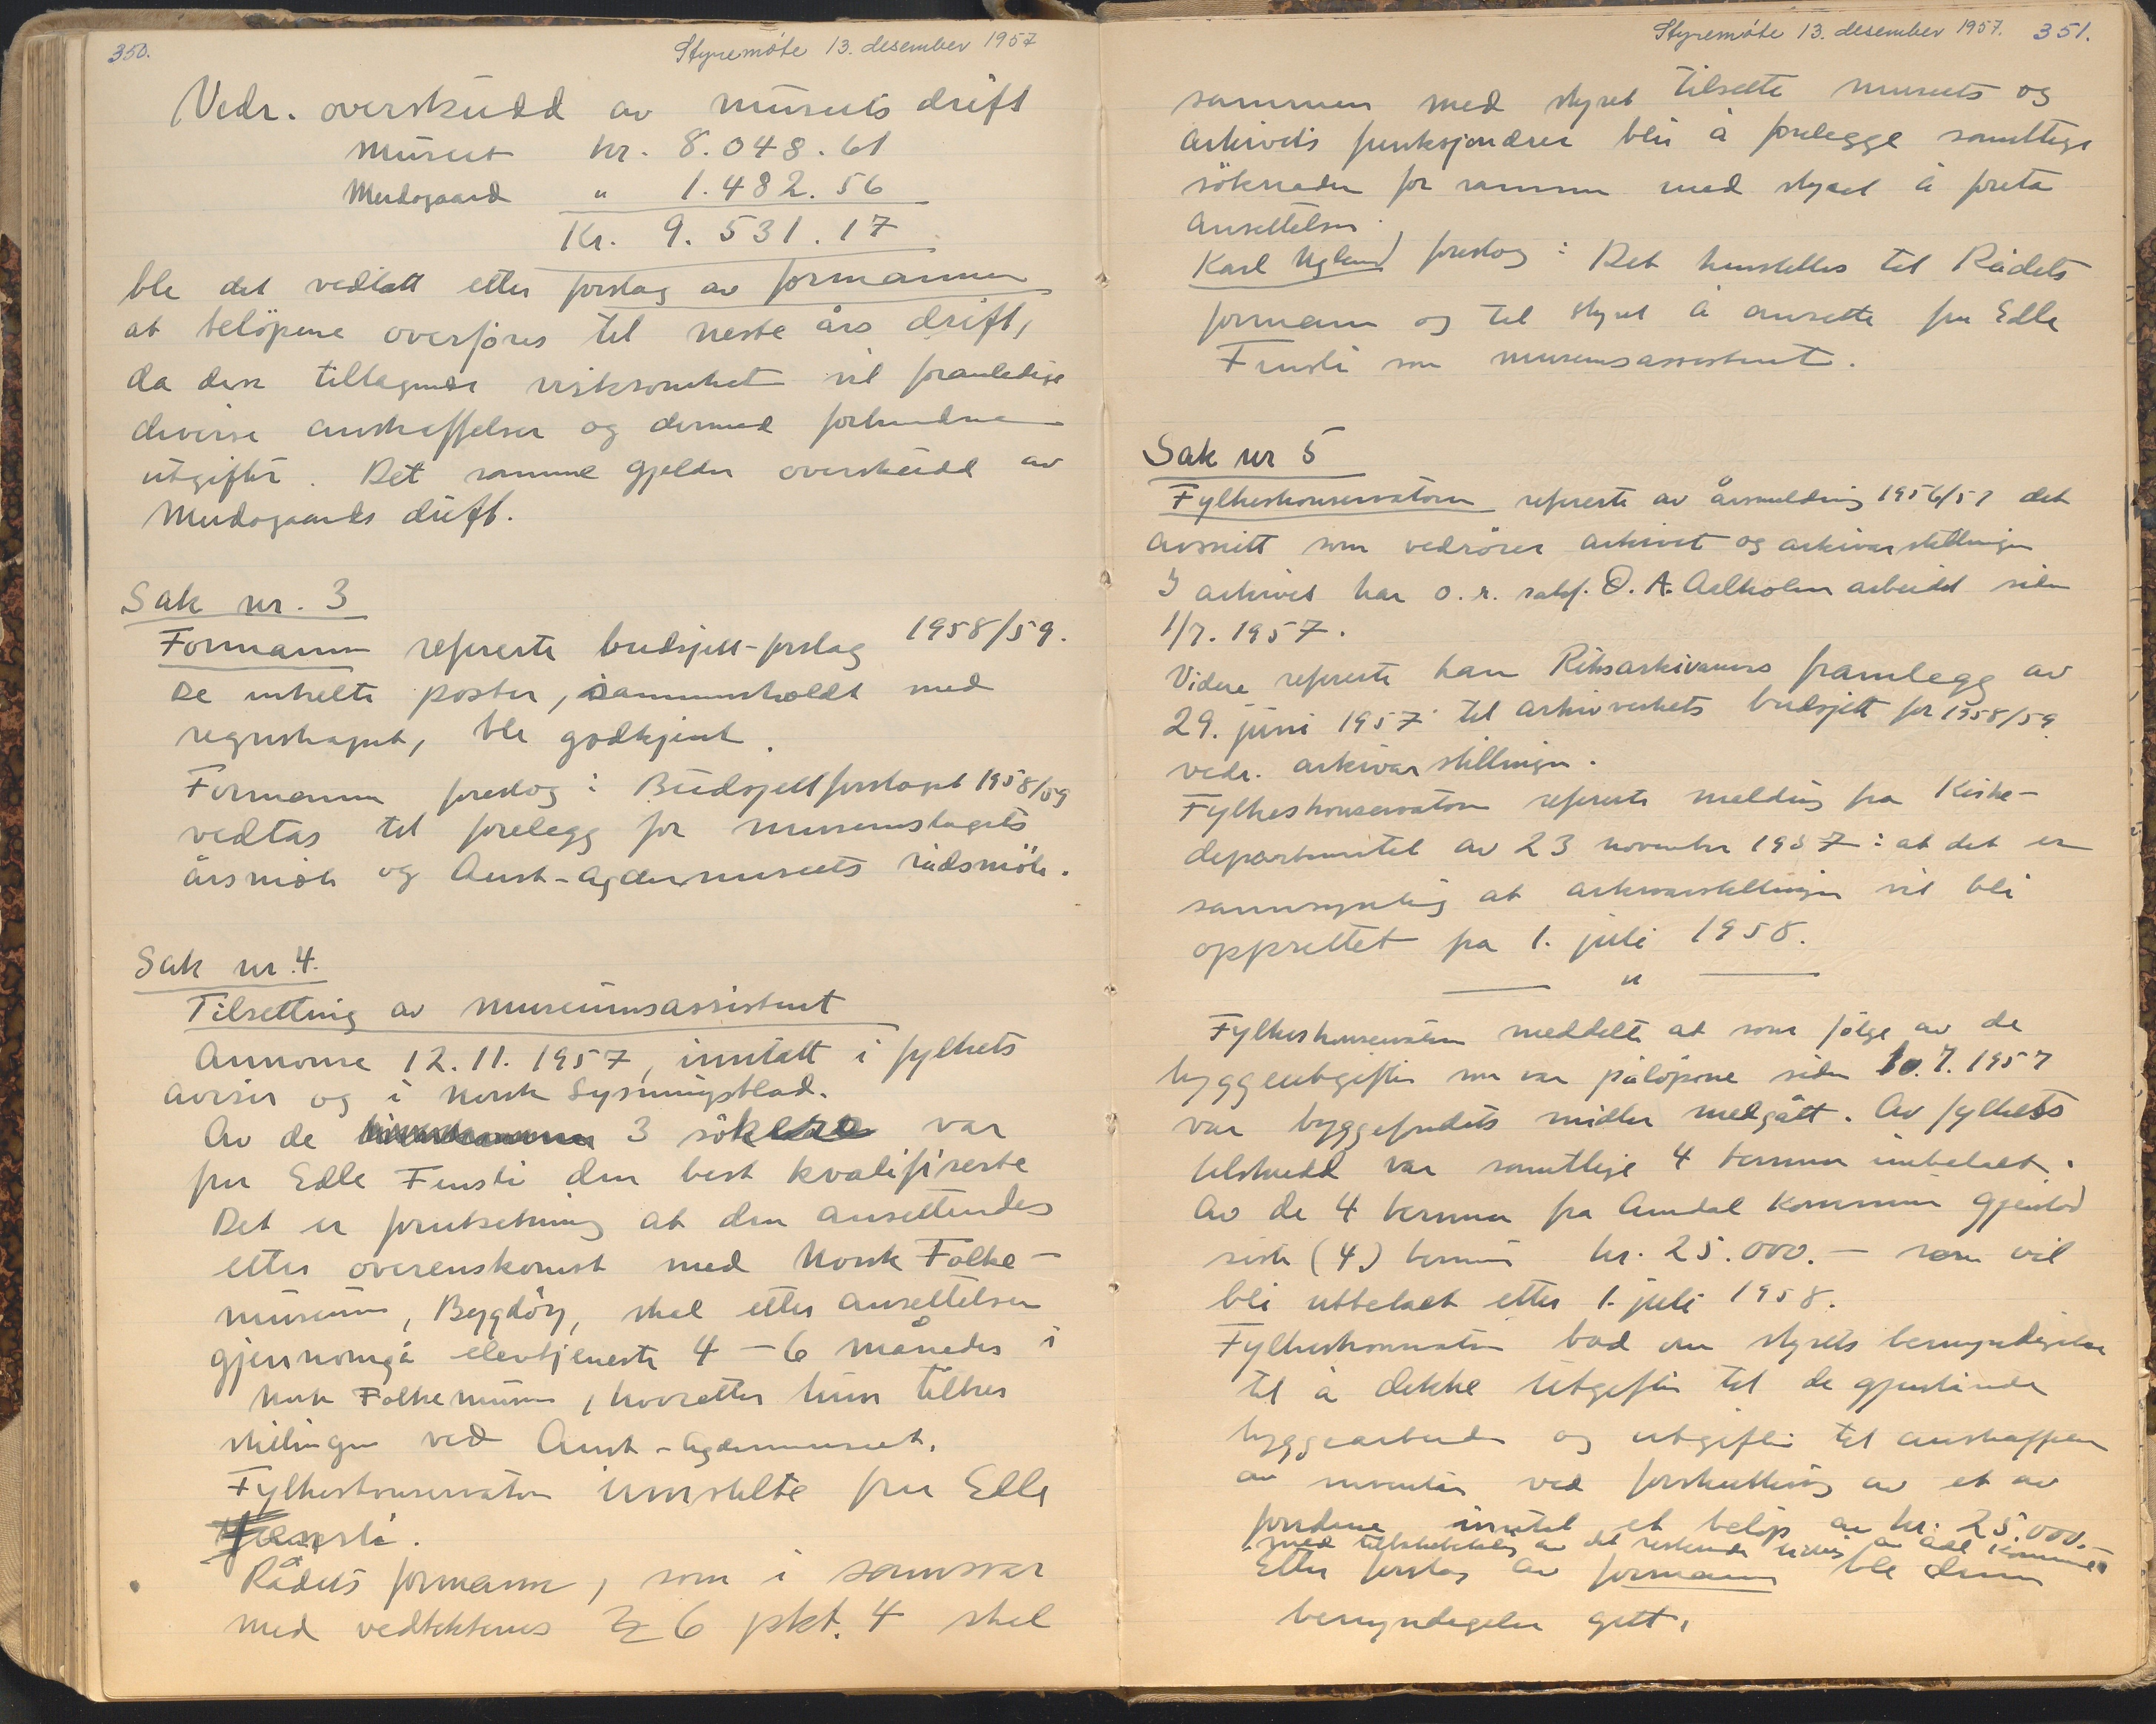 350.
Styremöte 13. desember 1957
Vedr. overskudd av museets drift
Museet kr. 8.048.61
Merdogaard " 1.482.56
Kr. 9.531.17
ble det vedtatt etter forslag av formannen
at belöpene overföres til neste års drift,
da den tiltagende virksomhet vil foranledige
diverse anskaffelser og dermed forbundne
utgifter. Det samme gjelder overskudd av
Merdogaards drift.
Sak nr. 3
Formannen refererte budsjett-forslag 1958/59.
De enkelte poster, sammenholdt med
regnskapet, ble godkjent.
Formannen foreslog: Budsjettforslaget 1958/59
vedtas til forelegg for museumslagets
årsmöte og Aust-Agdermuseets rådsmöte.
Sak nr. 4.
Tilsetting av museumsassistent
Annonse 12.11.1957, inntatt i fylkets
aviser og i Norsk Lysningsblad.
Av de 3 sökere var
fru Edle Fensli den best kvalifiserte
Det er forutsetning at den ansettendes
etter overenskomst med Norsk Folke-
museum, Bygdöy, skal etter ansettelsen
gjennomgå elevtjeneste 4 - 6 måneder i
Norsk Folkemuseum, hvoretter hun tiltrer
stillingen ved Aust-Agdermuseet.
Fylkeskonservatoren innstilte fru Edle
Fensli.
Rådets formann, som i samsvar
med vedtektenes § 6 pkt. 4 skal
Styremöte 13. desember 1957. 351.
sammen med styret tilsette museets og
arkivets funksjonærer blir å forelegge samtlige
söknader for sammen med styret å foreta
ansettelsen.
Karl Ugland foreslog: Det henstilles til Rådets
formann og til styret å ansette fru Edle
Fensli som museumsassistent.
Sak nr 5
Fylkeskonservatoren refererte av årsmelding 1956/57 det
avsnitt som vedrörer arkivet og arkivarstillingen
I arkivet har o.r. sakf. O. A. Aalholm arbeidet siden
1/7. 1957.
Videre refererte han Riksarkivarens framlegg av
29. juni 1957 til arkivverkets budsjett for 1958/59
vedr. arkivarstillingen.
Fylkeskonservatoren refererte melding fra Kirke-
departementet av 23 november 1957: at det er
sannsynlig at arkivarstillingen vil bli
opprettet fra 1. juli 1958.
"
Fylkeskonservatoren meddelte at som fölge av de
byggeutgifter som var pålöpne siden 10.7.1957
var byggefondets midler medgått. Av fylkets
tilskudd var samtlige 4 terminer innbetalt.
Av de 4 terminer fra Arendal kommune gjenstod
siste (4.) termin kr. 25.000.- som vil
bli utbetalt etter 1. juli 1958.
Fylkeskonservatoren bad om styrets bemyndigelse
til å dekke utgifter til de gjenstående
byggearbeider og utgifter til anskaffelse
av inventar ved forskuttering av et av
fondene inntil et belöp av kr. 25.000.-
med tilbakebetaling av det resterende av Adl kommune
Etter forslag av formannen ble denne
bemyndigelse gitt.